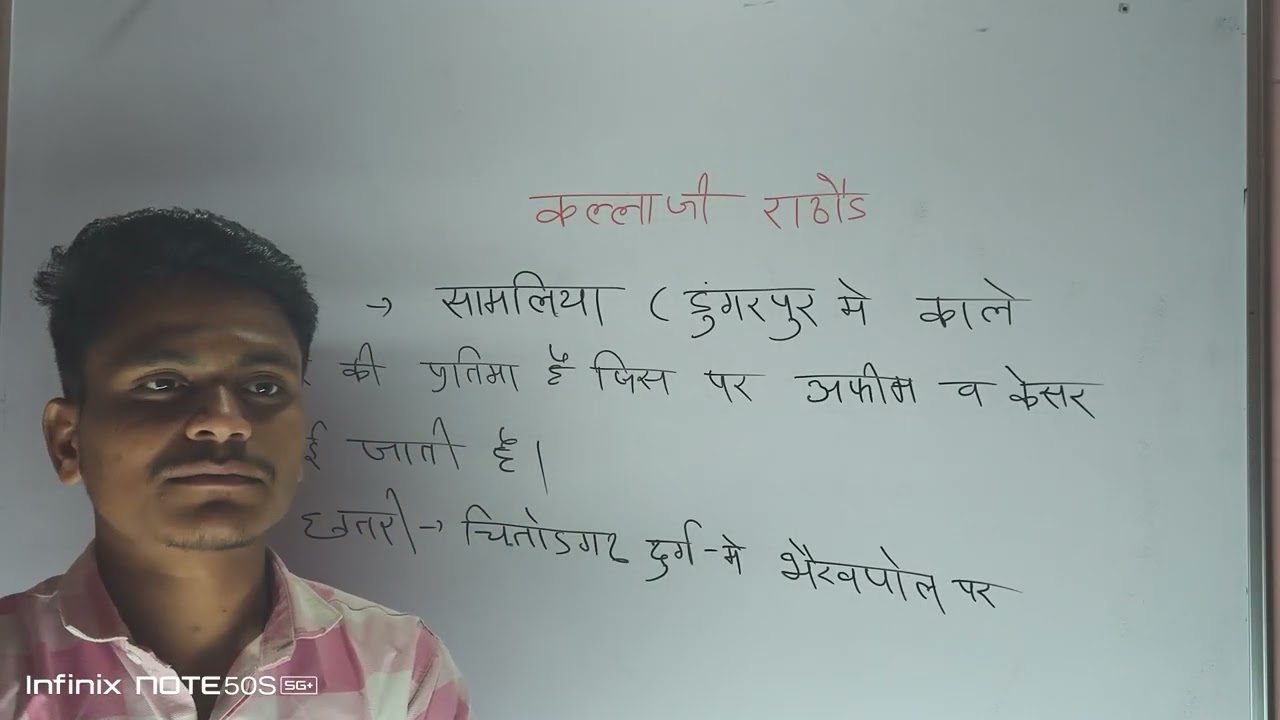 कल्लाजी राठौड
→ सामलिया ( डुंगरपुर मे काले
की प्रतिमा है जिस पर अफीम व केसर
ई जाती है।
छतरी → चितोडगर दुर्ग-मे भैरवपोल पर
Infinix NOTE50S 5G+